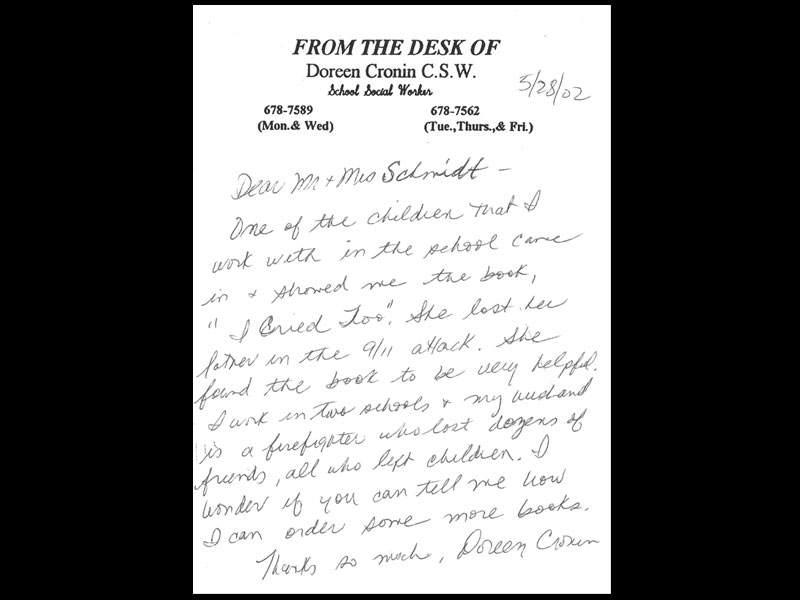 FROM THE DESK OF
Doreen Cronin C.S.W.
School Social Worker
5/28/02
678-7589 678-7562
(Mon.& Wed) (Tue.,Thurs.,& Fri.)
Dear Mr + Mrs Schmidt -
One of the children that I
work with in the school came
in + showed me the book,
"I Cried Too". She lost her
father in the 9/11 attack. She
found the book to be very helpful.
I work in two schools + my husband
is a firefighter who lost dozens of
friends, all who left children. I
wonder if you can tell me how
I can order some more books.
Thanks so much, Doreen Cronin